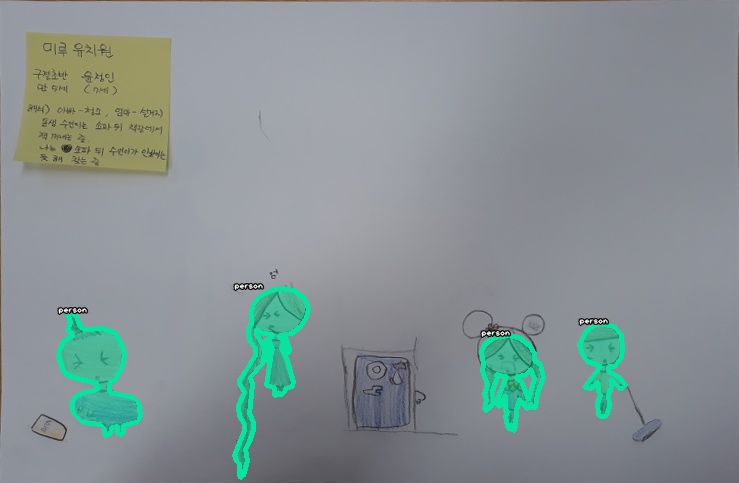 미루 유치원
구절초반 윤정인
만 5세 (7세)
해석) 아빠-청소, 엄마-설거지
동생 수인이는 소파 뒤 책장에서
책 꺼내는 중.
나는 소파 뒤 수인이가
못 해 찾는 중
엄
person
person
person
person